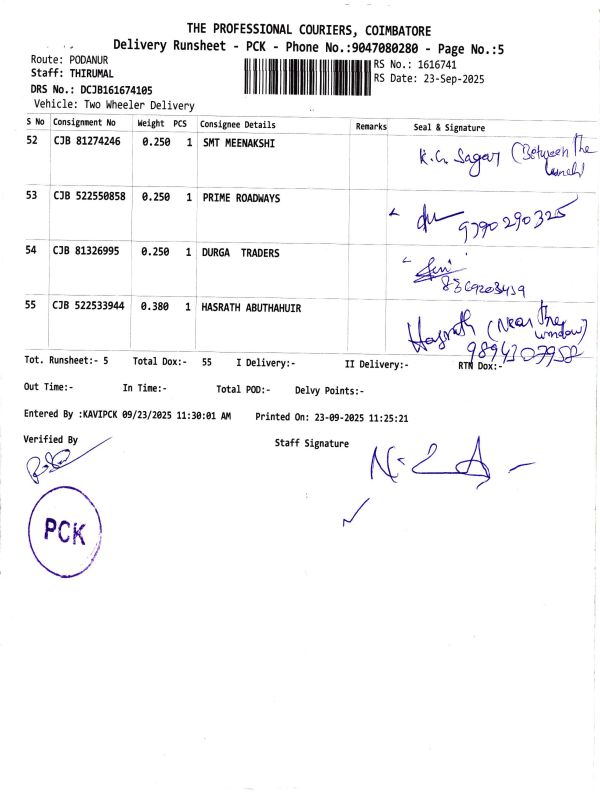 THE PROFESSIONAL COURIERS, COIMBATORE
Delivery Runsheet - PCK - Phone No.:9047080280 - Page No.:5
Route: PODANUR
RS No.: 1616741
Staff: THIRUMAL
RS Date: 23-Sep-2025
DRS No.: DCJB161674105
Vehicle: Two Wheeler Delivery
S No Consignment No Weight PCS Consignee Details Remarks Seal & Signature
52 CJB 81274246 0.250 1 SMT MEENAKSHI K.G. Sagar (Between the
53 CJB 522550858 0.250 1 PRIME ROADWAYS
9790290325
54 CJB 81326995 0.250 1 DURGA TRADERS
55 CJB 522533944 0.380 1 HASRATH ABUTHAHUIR
Hasrath (Near the
window)
9894307958
Tot. Runsheet:- 5 Total Dox:- 55 I Delivery:- II Delivery:- RTN Dox:-
Out Time:- In Time:- Total POD:- Delvy Points:-
Entered By :KAVIPCK 09/23/2025 11:30:01 AM Printed On: 23-09-2025 11:25:21
Verified By Staff Signature
PCK